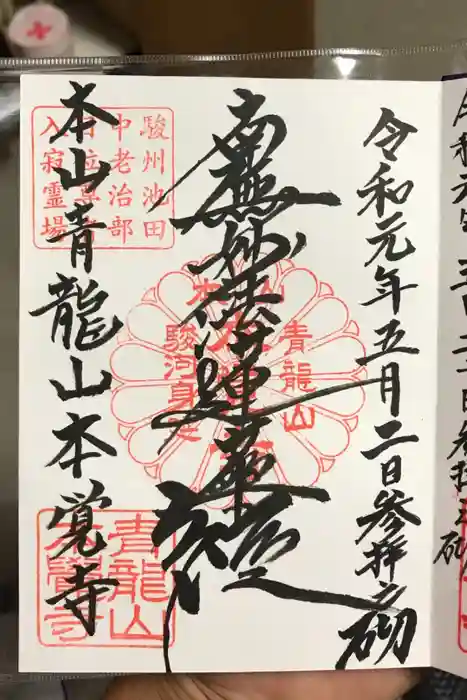 令和元年五月二日参拝之砌
南無妙法蓮華経
本山青龍山本覚寺
駿州池田
中老治部
日位尊者
入寂霊場
青龍山
駿河身延
青龍山
本覺寺